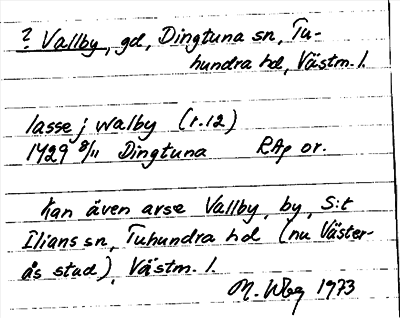 ? Vallby, gd, Dingtuna sn, Tu-
hundra hd, Västm. l.
lasse j walby (r.12)
1429 8/11 Dingtuna RAp or.
Kan även avse Vallby, by, S:t
Ilians sn, Tuhundra hd (nu Väster-
ås stad), Västm. l.
M. Wbg 1973